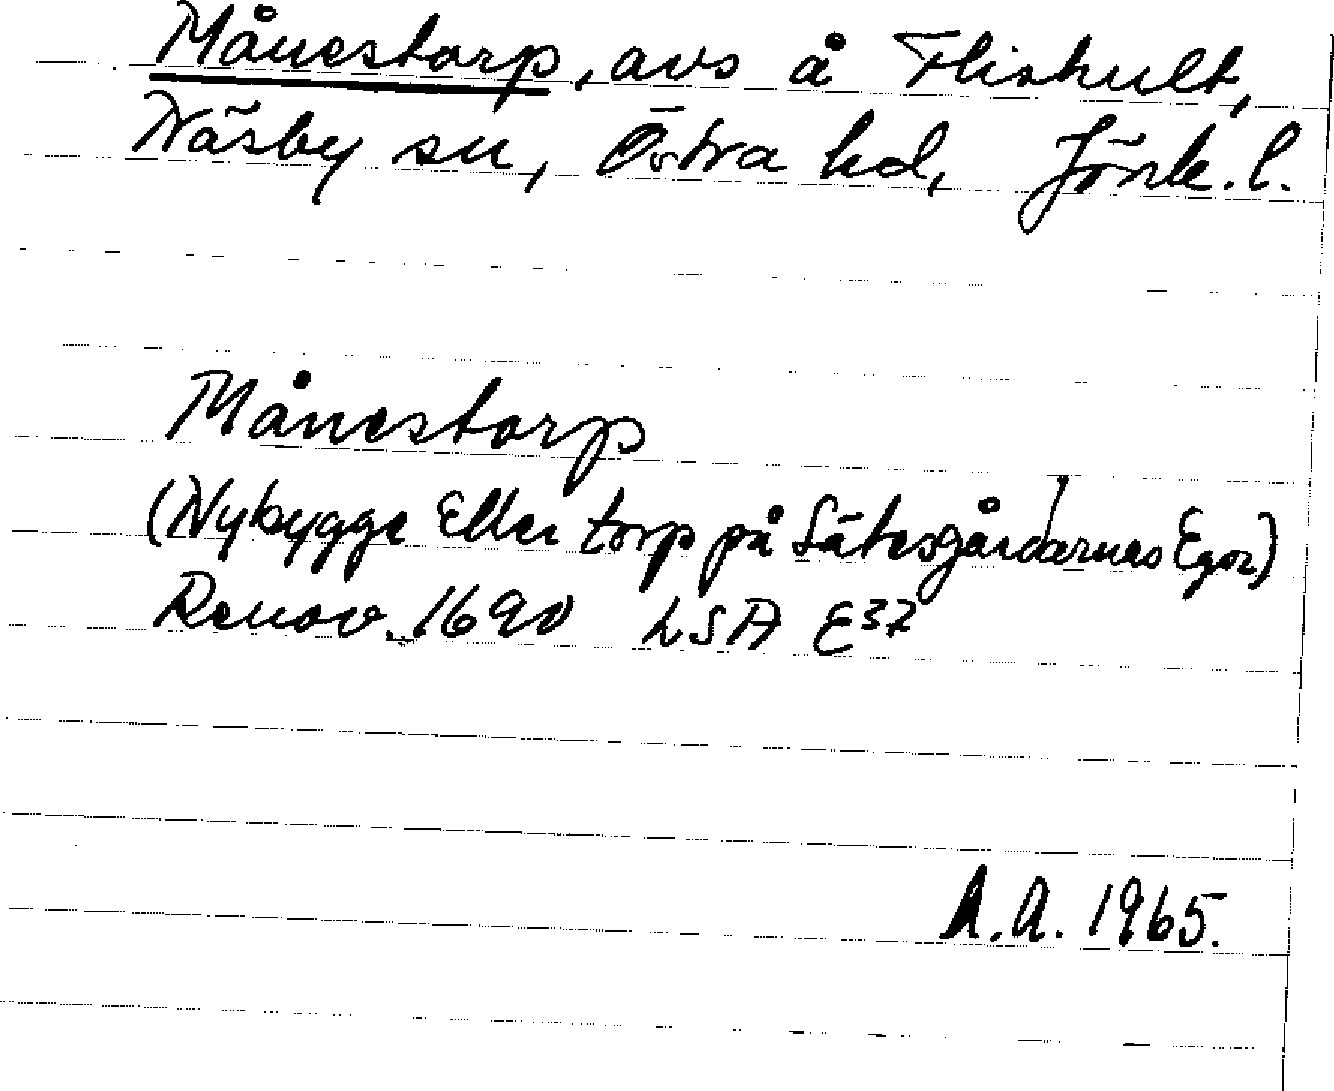 Månestorp, avs å Fliskult,
Näsby sn, Östra hd, Jönk. l.
Månestorp
(Nybygge Eller torp på Sätesgårdarnes Egor)
Renov. 1690 LSA E37
A.A. 1965.